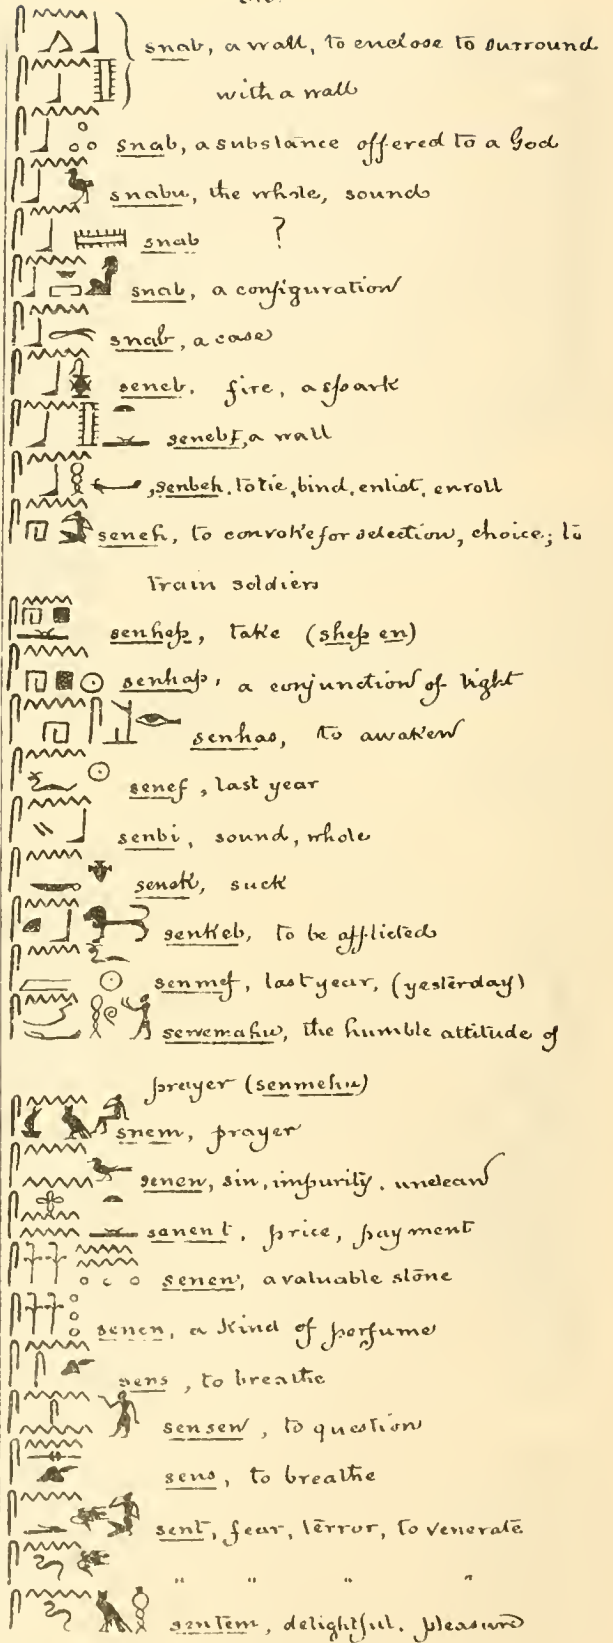 snab, a wall, to enclose to surround
with a wall
snab, a substance offered to a God
snabu, the whole, sound
snab ?
snab, a configuration
snab, a case
seneb, fire, a spark
senebt, a wall
, senbeh, to tie, bind, enlist, enroll
seneh, to convoke for selection, choice; to
train soldiers
senhep, take (shep en)
senhap, a conjunction of light
senhas, to awaken
senef, last year
senbi, sound, whole
senek, suck
senkeb, to be afflicted
senmef, last year, (yesterday)
senemahu, the humble attitude of
prayer (senmehu)
snem, prayer
senen, sin, impurity, unclean
sanent, price, payment
senen, a valuable stone
senen, a kind of perfume
sens, to breathe
sensen, to question
sens, to breathe
sent, fear, terror, to venerate
" " " "
sentem, delightful, pleasure